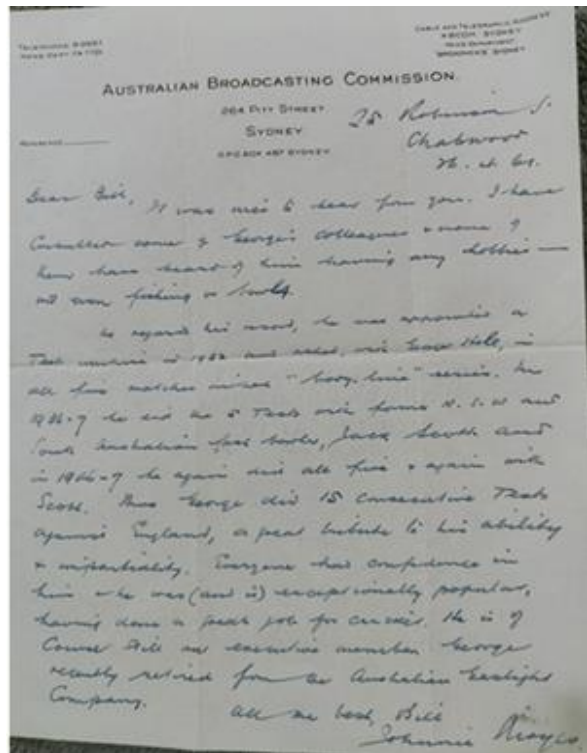 AUSTRALIAN BROADCASTING COMMISSION.
264 PITT STREET
SYDNEY
G.P.O. BOX 487 SYDNEY
25 Robinson St.
Chatswood
Dear Bill, It was nice to hear from you. I have
Consulted some of George's colleagues & none of
them have heard of him having any hobbies —
not even fishing or bowls.
As regards his record, he was appointed a
Test umpire in 1932 and acted, with George Hele, in
all five matches in that "body-line" series. In
1936-7 he did the 5 Tests with former N.S.W. and
South Australian fast bowler, Jack Scott and
in 1946-7 he again did all five & again with
Scott. Thus George did 15 consecutive Tests
against England, a great tribute to his ability
& impartiality. Everyone had confidence in
him & he was (and is) exceptionally popular,
having done a great job for cricket. He is of
Course still an executive member. George
recently retired from the Australian Gaslight
Company.
All the best, Bill
Johnnie Moyes